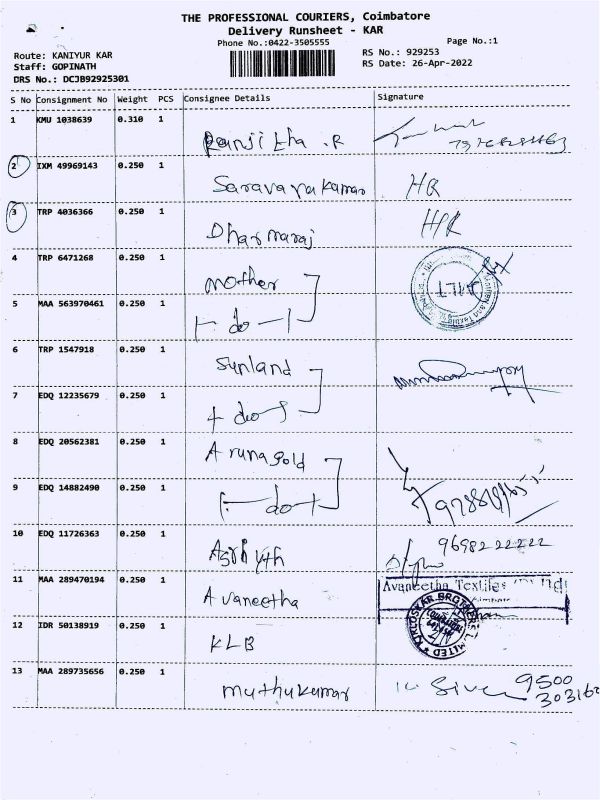 THE PROFESSIONAL COURIERS, Coimbatore
Delivery Runsheet - KAR
Phone No.:0422-3505555
Page No.:1
Route: KANIYUR KAR
Staff: GOPINATH
DRS No.: DCJB92925301
RS No.: 929253
RS Date: 26-Apr-2022
S No Consignment No Weight PCS Consignee Details Signature
1 KMU 1038639 0.310 1 Ranjitha .R
2 IXM 49969143 0.250 1 Saravanakumar HR
3 TRP 4036366 0.250 1 Dharmaraj HR
4 TRP 6471268 0.250 1 mother
5 MAA 563970461 0.250 1 - do -
6 TRP 1547918 0.250 1 Sunland
7 EDQ 12235679 0.250 1 - do -
8 EDQ 20562381 0.250 1 Aruna gold
9 EDQ 14882490 0.250 1 - do -
10 EDQ 11726363 0.250 1 96982 22222
11 MAA 289470194 0.250 1 Avaneetha Avaneetha Textiles (P) Ltd
12 IDR 50138919 0.250 1 KLB KIRLOSKAR BROTHERS LIMITED
13 MAA 289735656 0.250 1 muthukumar Siva 9500
303162